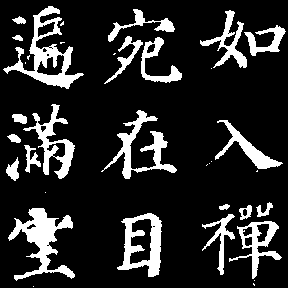 如入禪
宛在目
遍滿室